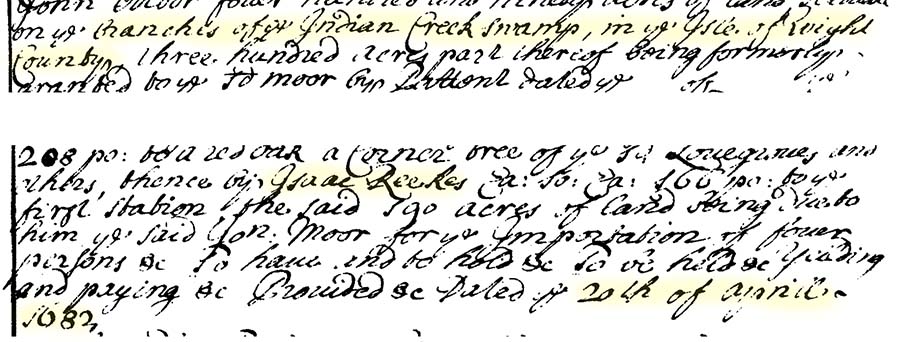 John Moor fower hundred and ninety acres of land
on ye branches of ye Indian Creek swamp, in ye Isle of Wight
County, three hundred acres part thereof being formerly
granted to ye sd moor by Pattent dated ye of ye
208 po: to a red oak a Corner tree of ye sd and
others, thence by Isaac Reekes 160 po: to ye
first station, the said 490 acres of land being due to
him ye said Jon. Moor for ye Importation of fower
persons &c To have and to hold &c To be held &c Yeilding
and paying &c Provided &c Dated ye 20th of Aprill
1682